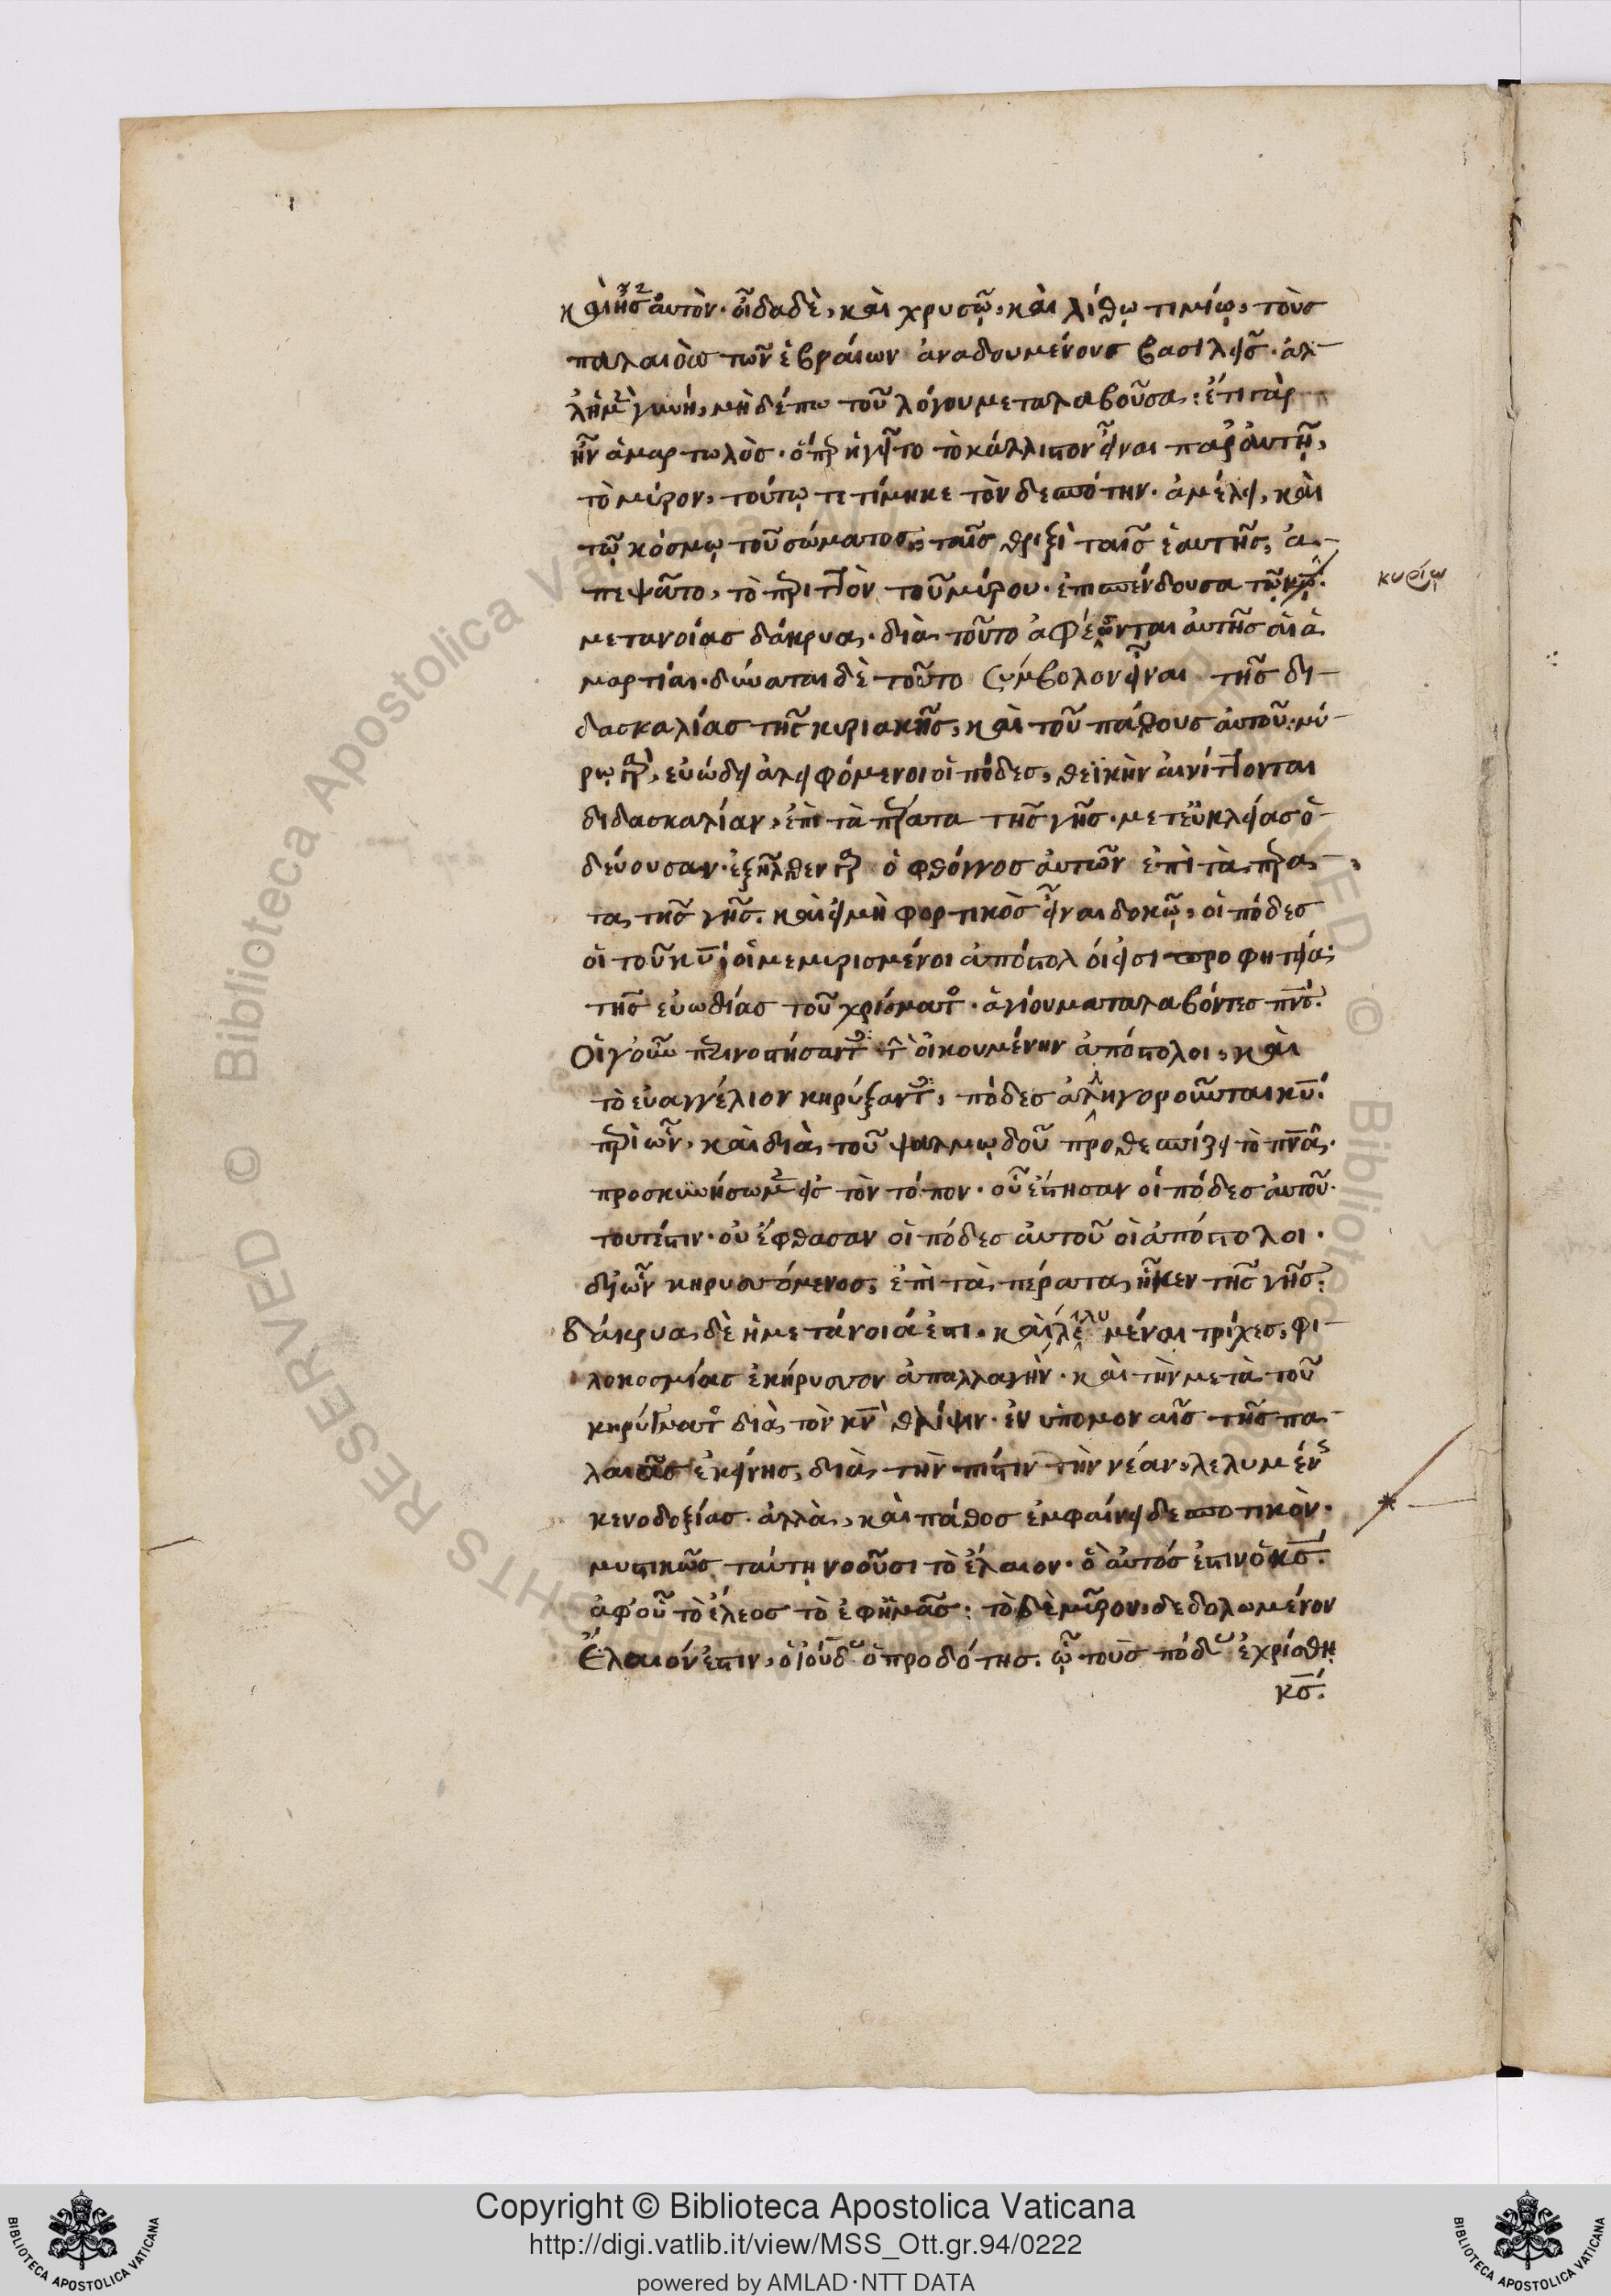 καὶ ἥσας αὐτόν· οἶδα δὲ, καὶ χρυσῷ, καὶ λίθῳ τιμίῳ, τοὺς
παλαιοὺς τῶν ἑβραίων ἀναδουμένους βασιλεῖς· ἀλ-
λ' ἡ μὲν γυνὴ, μηδέπω τοῦ λόγου μεταλαβοῦσα· ἔτι γὰρ
ἦν ἁμαρτωλός· ὅπερ ἡγεῖτο τὸ κάλλιστον εἶναι παρ' αὐτῇ,
τὸ μύρον, τούτῳ τετίμηκε τὸν δεσπότην· ἀμέλει, καὶ
τῷ κόσμῳ τοῦ σώματος, ταῖς θριξὶ ταῖς ἑαυτῆς, ἀ-
πεψᾶτο, τὸ περιττὸν τοῦ μύρου· ἐπισπένδουσα τῷ κῷ.
κυρίῳ
μετανοίας δάκρυα· διὰ τοῦτο ἀφέωνται αὐτῆς αἱ ἁ
μαρτίαι· δύναται δὲ τοῦτο σύμβολον εἶναι τῆς δι-
δασκαλίας τῆς κυριακῆς, καὶ τοῦ πάθους αὐτοῦ· μύ-
ρῳ γὰρ, εὐώδει ἀλειφόμενοι οἱ πόδες, θεϊκὴν αἰνίττονται
διδασκαλίαν, ἐπὶ τὰ πέρατα τῆς γῆς· μετ' εὐκλείας ὁ-
δεύουσαν· ἐξῆλθεν γὰρ ὁ φθόγγος αὐτῶν ἐπὶ τὰ πέρα-
τα τῆς γῆς. καὶ εἰ μὴ φορτικὸς εἶναι δοκῷ, οἱ πόδες
οἱ τοῦ κυ οἱ μεμυρισμένοι ἀπόστολοί εἰσι προφητεία
τῆς εὐωδίας τοῦ χρίσματος· ἁγίου ματαλαβόντες πνς.
Οἱ γοῦν περινοστήσαντες τὴν οἰκουμένην ἀπόστολοι, καὶ
τὸ εὐαγγέλιον κηρύξαντες, πόδες ἀλληγοροῦνται κυ.
περὶ ὧν, καὶ διὰ τοῦ ψαλμῳδοῦ προθεσπίζει τὸ πνα.
προσκυνήσωμεν εἰς τὸν τόπον· οὗ ἔστησαν οἱ πόδες αὐτοῦ.
τουτέστιν· οὗ ἔφθασαν οἱ πόδες αὐτοῦ οἱ ἀπόστολοι·
δι' ὧν κηρυσσόμενος, ἐπὶ τὰ πέρατα, ἧκεν τῆς γῆς.
δάκρυα δὲ ἡ μετάνοιά ἐστι· καὶ λελυμέναι τρίχες, φι-
λοκοσμίας ἐκήρυσσον ἀπαλλαγήν· καὶ τὴν μετὰ τοῦ
κηρύγματος διὰ τὸν κν θλίψιν· ἐν ὑπομοναῖς τῆς πα-
λαιᾶς ἐκείνης, διὰ τὴν πίστιν τὴν νέαν, λελυμένης
κενοδοξίας· ἀλλὰ, καὶ πάθος ἐμφαίνει δεσποτικὸν·
μυστικῶς ταύτῃ νοοῦσι τὸ ἔλαιον· ὃ αὐτός ἐστιν ὁ κς.
ἀφ' οὗ τὸ ἔλεος τὸ ἐφ' ἡμᾶς· τὸ δὲ μύρον, δεδολωμένον
Ἔλαιόν ἐστιν, ὁ ἰούδας ὁ προδότης. ᾧ τοὺς πόδας ἐχρίσθη
κς.
Copyright © Biblioteca Apostolica Vaticana
http://digi.vatlib.it/view/MSS_Ott.gr.94/0222
powered by AMLAD·NTT DATA